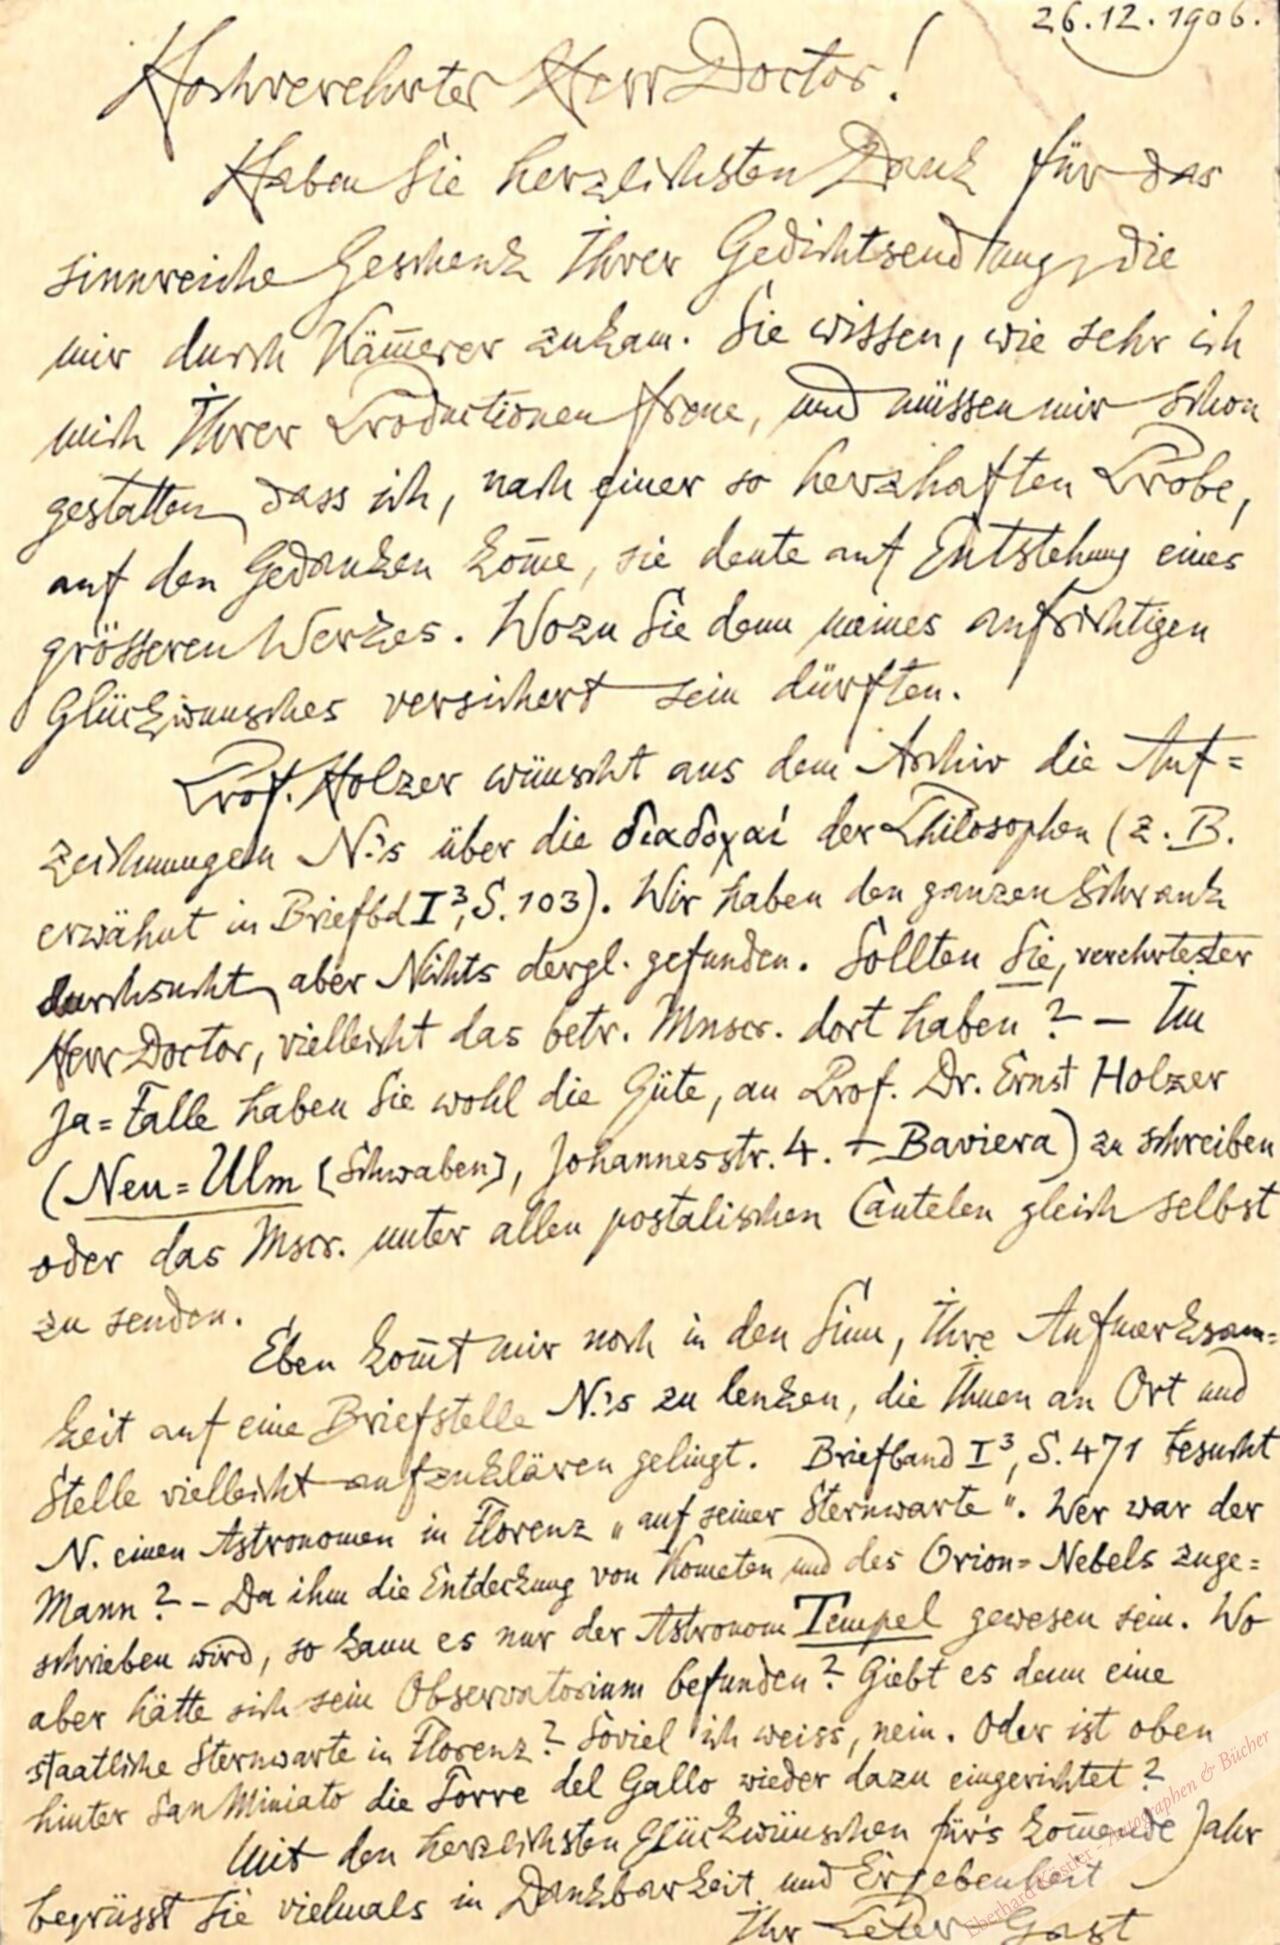 26.12.1906.
Hochverehrter Herr Doctor!
Haben Sie herzlichsten Dank für das
sinnreiche Geschenk Ihrer Gedichtsendung, die
mir durch Käm̄erer zukam. Sie wissen, wie sehr ich
mich Ihrer Productionen freue, und müssen mir schon
gestatten, dass ich, nach einer so herzhaften Probe,
auf den Gedanken kom̄e, sie deute auf Entstehung eines
grösseren Werkes. Wozu Sie denn meines aufrichtigen
Glückwunsches versichert sein dürften.
Prof. Holzer wünscht aus dem Archiv die Auf=
zeichnungen N.'s über die διαδοχαί der Philosophen (z. B.
erwähnt in Briefbd I³, S. 103). Wir haben den ganzen Schrank
durchsucht, aber Nichts dergl. gefunden. Sollten Sie, verehrtester
Herr Doctor, vielleicht das betr. Mnscr. dort haben? – Im
Ja=Falle haben Sie wohl die Güte, an Prof. Dr. Ernst Holzer
(Neu=Ulm [Schwaben], Johannesstr. 4. – Baviera) zu schreiben
oder das Mscr. unter allen postalischen Cautelen gleich selbst
zu senden.
Eben kom̄t mir noch in den Sinn, Ihre Aufmerksam=
keit auf eine Briefstelle N.'s zu lenken, die Ihnen an Ort und
Stelle vielleicht aufzuklären gelingt. Briefband I³, S. 471 besucht
N. einen Astronomen in Florenz „auf seiner Sternwarte". Wer war der
Mann? – Da ihm die Entdeckung von Kometen und des Orion=Nebels zuge=
schrieben wird, so kann es nur der Astronom Tempel gewesen sein. Wo
aber hätte sich sein Observatorium befunden? Giebt es denn eine
staatliche Sternwarte in Florenz? Soviel ich weiss, nein. Oder ist oben
hinter San Miniato die Torre del Gallo wieder dazu eingerichtet?
Mit den herzlichsten Glückwünschen für's kom̄ende Jahr
begrüsst Sie vielmals in Dankbarkeit und Ergebenheit
Ihr Peter Gast
Eberhard Köstler - Autographen & Bücher